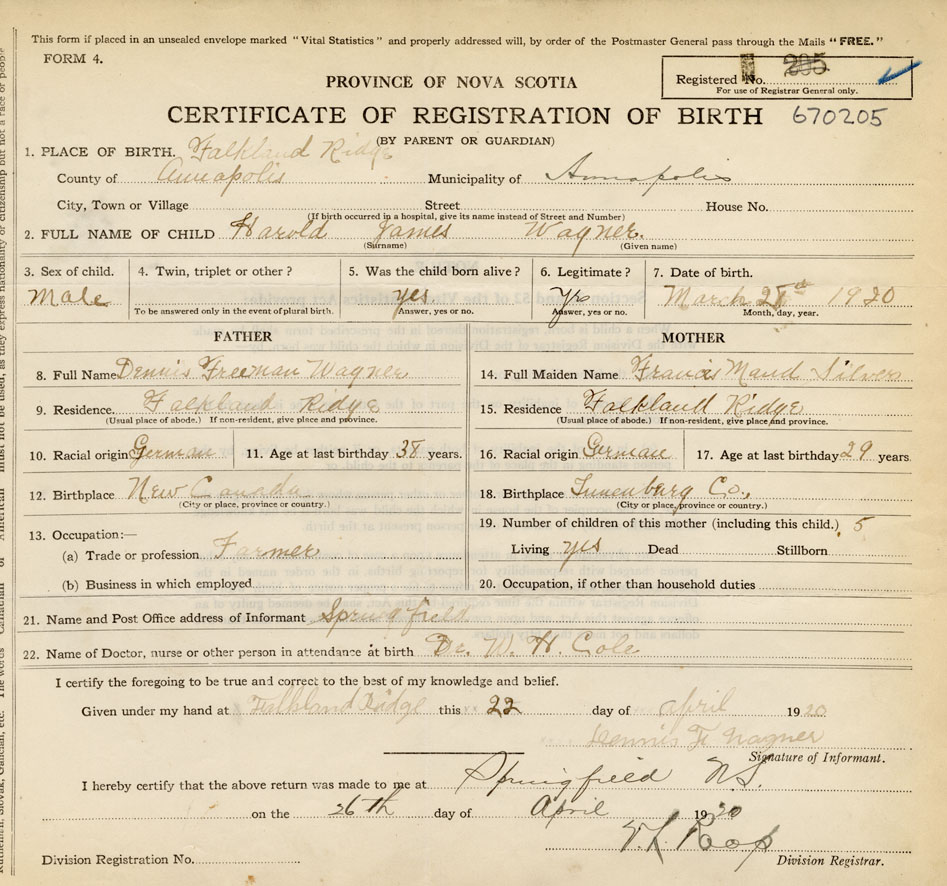 This form if placed in an unsealed envelope marked "Vital Statistics" and properly addressed will, by order of the Postmaster General pass through the Mails "FREE."
FORM 4.
Registered No. 205
For use of Registrar General only.
PROVINCE OF NOVA SCOTIA
CERTIFICATE OF REGISTRATION OF BIRTH 670205
(BY PARENT OR GUARDIAN)
1. PLACE OF BIRTH. Falkland Ridge
County of Annapolis Municipality of Annapolis
City, Town or Village Street House No.
(If birth occurred in a hospital, give its name instead of Street and Number)
2. FULL NAME OF CHILD Harold James Wagner.
(Surname) (Given name)
3. Sex of child. 4. Twin, triplet or other? 5. Was the child born alive? 6. Legitimate? 7. Date of birth.
Male yes yes March 1920
To be answered only in the event of plural birth. Answer, yes or no. Answer, yes or no. Month, day, year.
FATHER MOTHER
8. Full Name Dennis Freeman Wagner 14. Full Maiden Name Francis Maud Silver
9. Residence. Falkland Ridge 15. Residence Falkland Ridge
(Usual place of abode.) If non-resident, give place and province. (Usual place of abode.) If non-resident, give place and province.
10. Racial origin German 11. Age at last birthday 38 years. 16. Racial origin German 17. Age at last birthday 29 years.
12. Birthplace New Canada 18. Birthplace Lunenburg Co.,
(City or place, province or country.) (City or place, province or country.)
19. Number of children of this mother (including this child.) 5
13. Occupation:—
(a) Trade or profession Farmer Living yes Dead Stillborn
(b) Business in which employed 20. Occupation, if other than household duties
21. Name and Post Office address of Informant Springfield
22. Name of Doctor, nurse or other person in attendance at birth Dr. W. H. Cole
I certify the foregoing to be true and correct to the best of my knowledge and belief.
Given under my hand at Falkland Ridge this 22 day of April 1920
Dennis F Wagner
Signature of Informant.
I hereby certify that the above return was made to me at Springfield N.S.
on the 26th day of April 1920
Division Registration No. Division Registrar.